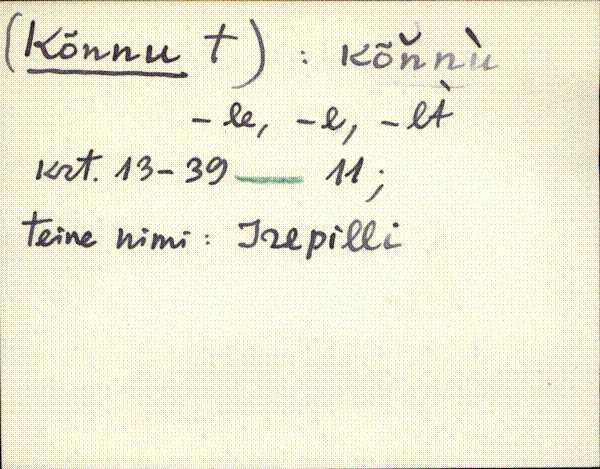 (Kõnnu t) : kõn̆nù
-le, -l, -lt̀
krt. 13-39 — 11;
teine nimi: Irepilli